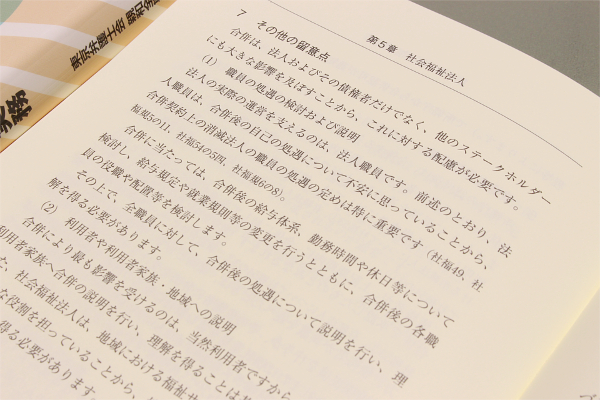 東京弁護士会
実務
第5章 社会福祉法人
7 その他の留意点
合併は、法人およびその債権者だけでなく、他のステークホルダー
にも大きな影響を及ぼすことから、これに対する配慮が必要です。
(1) 職員の処遇の検討および説明
法人の実際の運営を支えるのは、法人職員です。前述のとおり、法
人職員は、合併後の自己の処遇について不安に思っていることから、
合併契約上の消滅法人の職員の処遇の定めは特に重要です(社福49、社
福規5の11、社福54の5四、社福規6の8)。
合併に当たっては、合併後の給与体系、勤務時間や休日等について
検討し、給与規定や就業規則等の変更を行うとともに、合併後の各職
員の役職や配置等を検討します。
その上で、全職員に対して、合併後の処遇について説明を行い、理
解を得る必要があります。
(2) 利用者や利用者家族・地域への説明
合併により最も影響を受けるのは、当然利用者ですから
利用者家族へ合併の説明を行い、理解を得ることは
た、社会福祉法人は、地域における福祉サ
な役割を担っていることから、
得る必要があります。